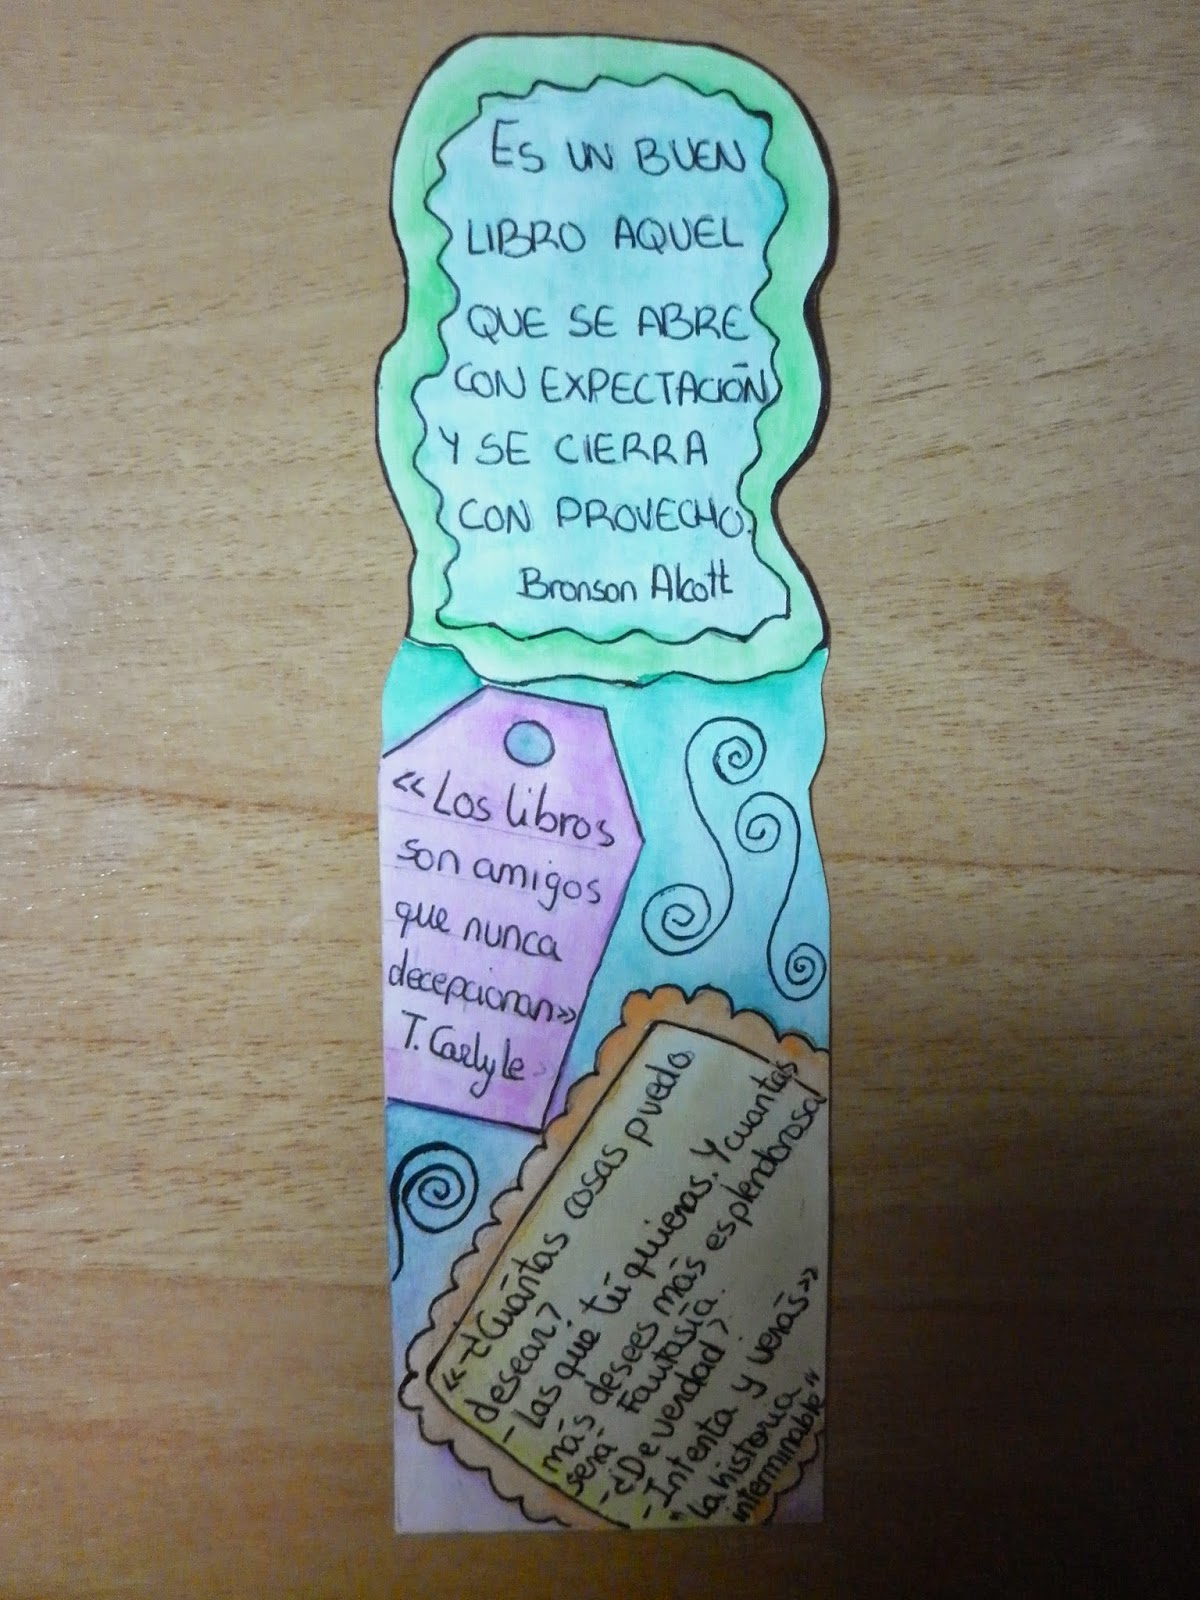 ES UN BUEN
LIBRO AQUEL
QUE SE ABRE
CON EXPECTACIÓN
Y SE CIERRA
CON PROVECHO.
Bronson Alcott
«Los libros
son amigos
que nunca
decepcionan»
T. Carlyle
«-¿Cuántas cosas puedo
desear?
- Las que tú quieras. Y cuantas
más desees más esplendorosa
será Fantasía.
-¿De verdad?
- Intenta y verás»
"La historia
interminable"